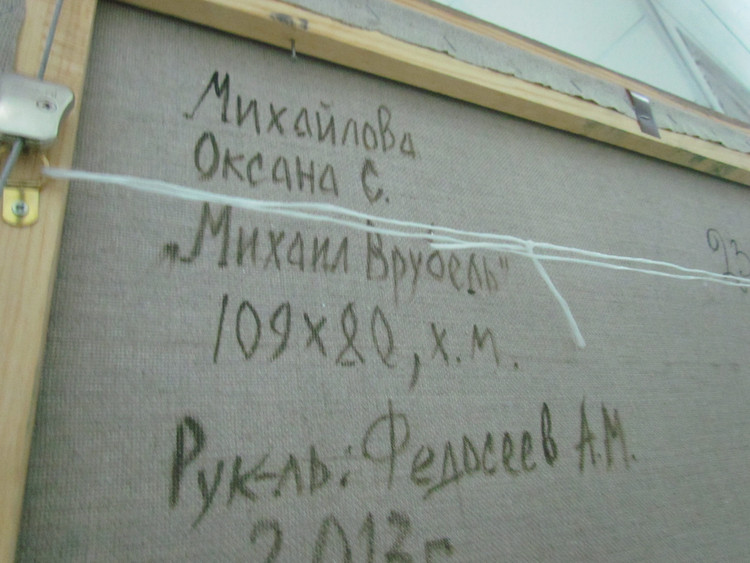 Михайлова
Оксана С.
„Михаил Врубель"
23
109x80, х.м.
Рук-ль: Федосеев А.М.
2013г